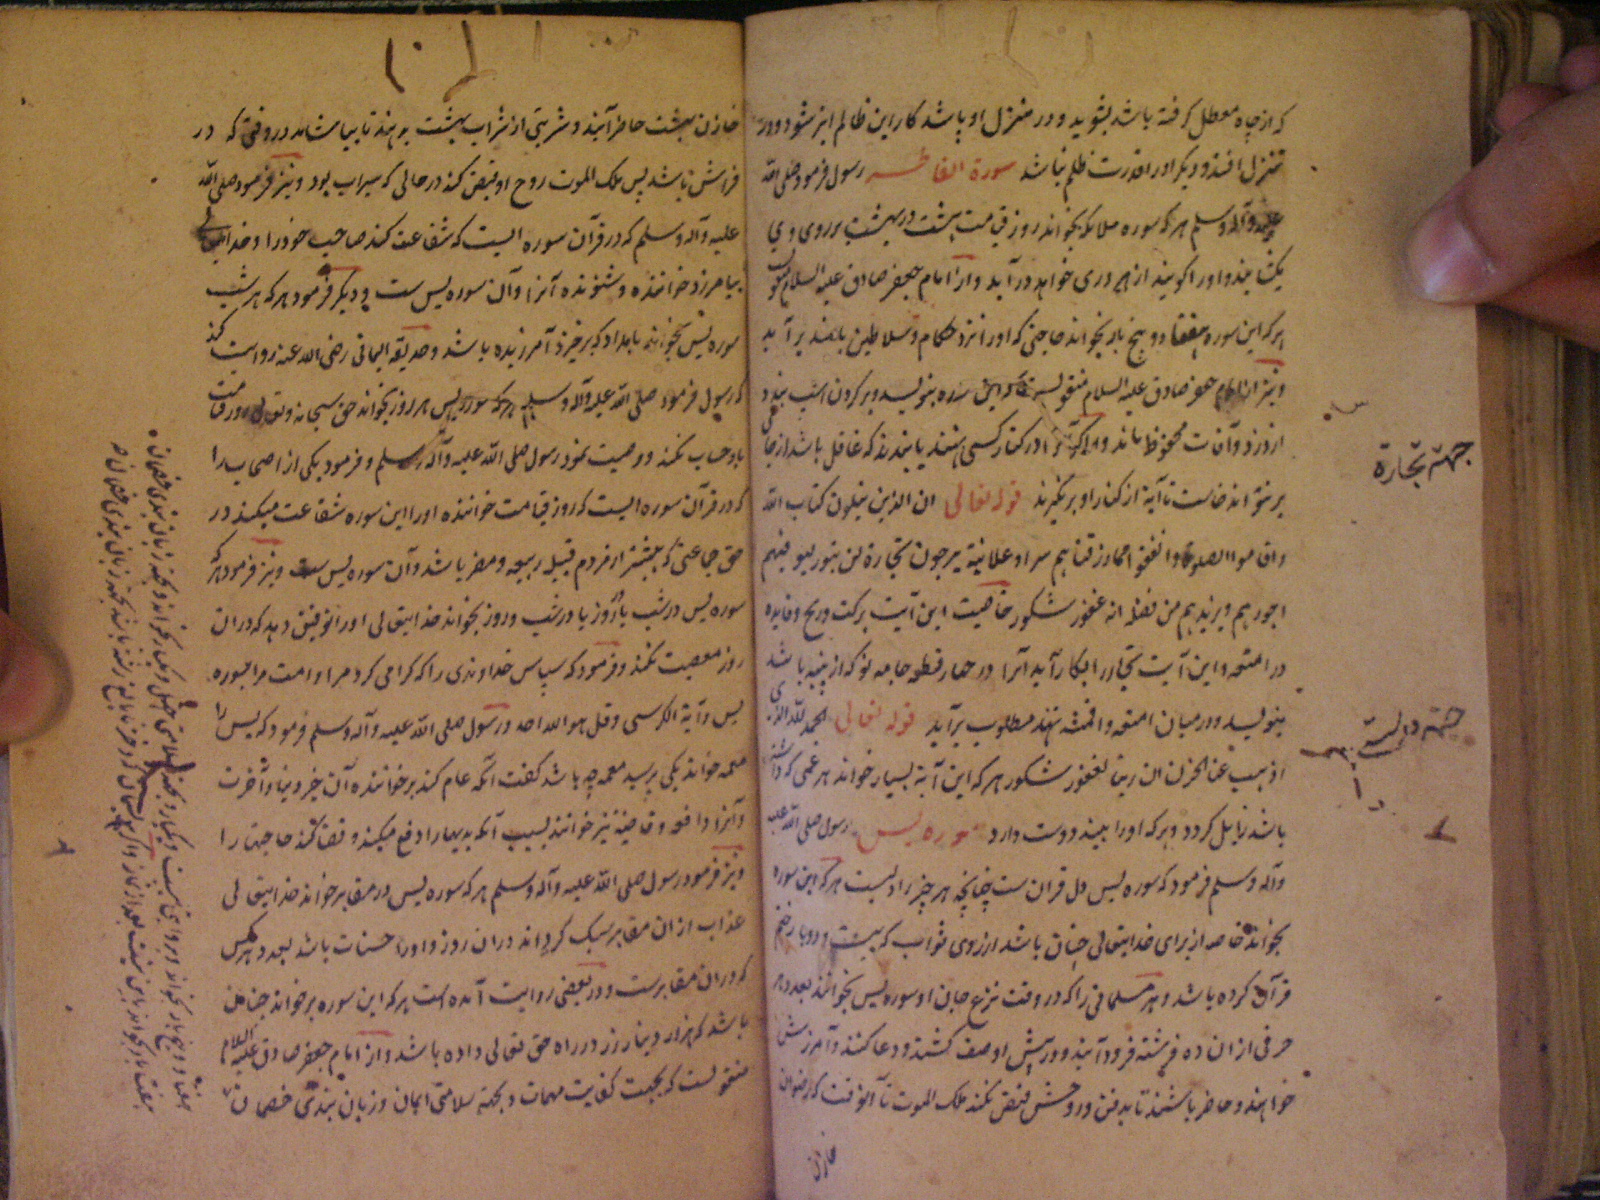 که از چاه معطل گرفته باشد بشوید و در منزل او پاشد کار این ظالم ابتر شود و در
تنزل افتد و دیگر او را قدرت ظلم نباشد سورة الفاطر رسول فرمود صلی الله
علیه وآله وسلم هر که سوره ملائکه بخواند روز قیامت هشت در بهشت بر روی وی
بکشایند و او را گویند از هر دری خواهد درآید و از امام جعفر صادق علیه السلام منقولست
هر که این سوره هفتاد و پنج بار بخواند حاجتی که او را نزد حکام و سلاطین باشد برآید
و نیز از امام جعفر صادق علیه السلام منقولست که این سوره بنویسد و بر گردن اسب بندد
از دزد و آفات محفوظ ماند و اگر در کنار کسی نهند که غافل باشد از جا
بر نتواند خاست تا آنرا از کنار او برنگیرند قوله تعالی ان الذین یتلون کتاب الله
واقاموا الصلوة وانفقوا مما رزقناهم سرا وعلانیة یرجون تجارة لن تبور لیوفیهم
اجورهم ویزیدهم من فضله انه غفور شکور خاصیت این آیت برکت و ربح و فایده
در امتعه و این آیت تجار را بکار آید آنرا در چهار قطعه جامه نو که از پنبه باشد
بنویسد و در میان امتعه و اقمشه نهد مطلوب برآید قوله تعالی الحمد لله الذی
اذهب عنا الحزن ان ربنا لغفور شکور هر که این آیة بسیار خواند هر غمی که داشته
باشد زایل گردد و هر که او را بیند دوست دارد سوره یس رسول صلی الله علیه
وآله وسلم فرمود که سوره یس دل قرانست چنانچه هر چیز را دلیست هر که این سوره
بخواند خاصه از برای خدایتعالی چنان باشد از روی ثواب که بیست و دو بار ختم
قرآن کرده باشد و هر مسلمانی را که در وقت نزع جان او سوره یس بخوانند بعدد هر
حرفی از ان ده فرشته فرود آیند و در پیش او صف کشند و دعا کنند و آمرزش
خواهند و حاضر باشند تا بدفن و روحش قبض نکند ملک الموت تا آنوقت که رضوان
خازن
جهة تجارة
جهة دوستی
خازن بهشت حاضر آیند و شربتی از شراب بهشت بدهند تا بیاشامد در وقتی که در
فراش باشد پس ملک الموت روح او قبض کند در حالی که سیراب بود و نیز فرمود صلی الله
علیه وآله وسلم که در قرآن سوره ایست که شفاعت کند صاحب خود را و خدایتعالی
بیامرزد خواننده و شنونده آنرا و آن سوره یس ست و دیگر فرمود هر که هر شب
سوره یس بخواند بامداد که برخیزد آمرزیده باشد و حذیفه الیمانی رضی الله عنه روایت کند
که رسول فرمود صلی الله علیه وآله وسلم هر که سوره یس هر روز بخواند حق سبحانه وتعالی در قیامت
با او حساب نکند و وصیت نمود رسول صلی الله علیه وآله وسلم و فرمود یکی از اصحاب را
که در قرآن سوره ایست که روز قیامت خواننده او را این سوره شفاعت میکند در
حق جماعتی که بیشتر از مردم قبیله ربیعه و مضر باشد و آن سوره یس ست و نیز فرمود هر که
سوره یس در شب یا روز یا در شب و روز بخواند خدایتعالی او را توفیق دهد که در ان
روز معصیت نکند و فرمود که سپاس خداوندی را که گرامی کرد مرا و امت مرا بسوره
یس و آیة الکرسی و قل هو الله احد و رسول صلی الله علیه وآله وسلم فرمود که یس را
معمه خوانند یکی پرسید معمه چه باشد گفت آنکه عام کند بر خواننده آن خیر دنیا و آخرت
و آنرا دافعه و قاضیه نیز خوانند بسبب آنکه بدیها را دفع میکند و قضا کند حاجتها را
و نیز فرمود رسول صلی الله علیه وآله وسلم هر که سوره یس در مقابر خواند خدایتعالی
عذاب از ان مقابر سبک گرداند در ان روز و او را حسنات باشد بعدد هر کس
که در ان مقابرست و در بعضی روایت آمده است هر که این سوره بر خواند چنان
باشد که هزار دینار زر در راه حق تعالی داده باشد و از امام جعفر صادق علیه السلام
منقولست که بجهت کفایت مهمات و بجهته سلامتی ایمان و زبان بندی خصمان